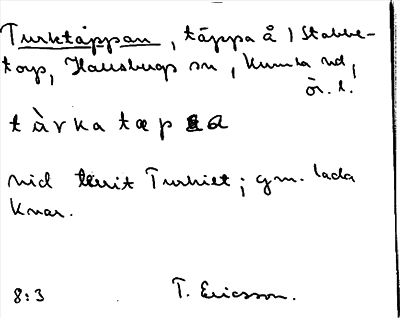 Turktäppan, täppa å 1 Stabbe-
torp, Hallsbergs sn, Kumla hd,
ör. l.
tàrkatæpa
vid Turkiet; gm. lada
kvar.
8:3 T. Ericsson.